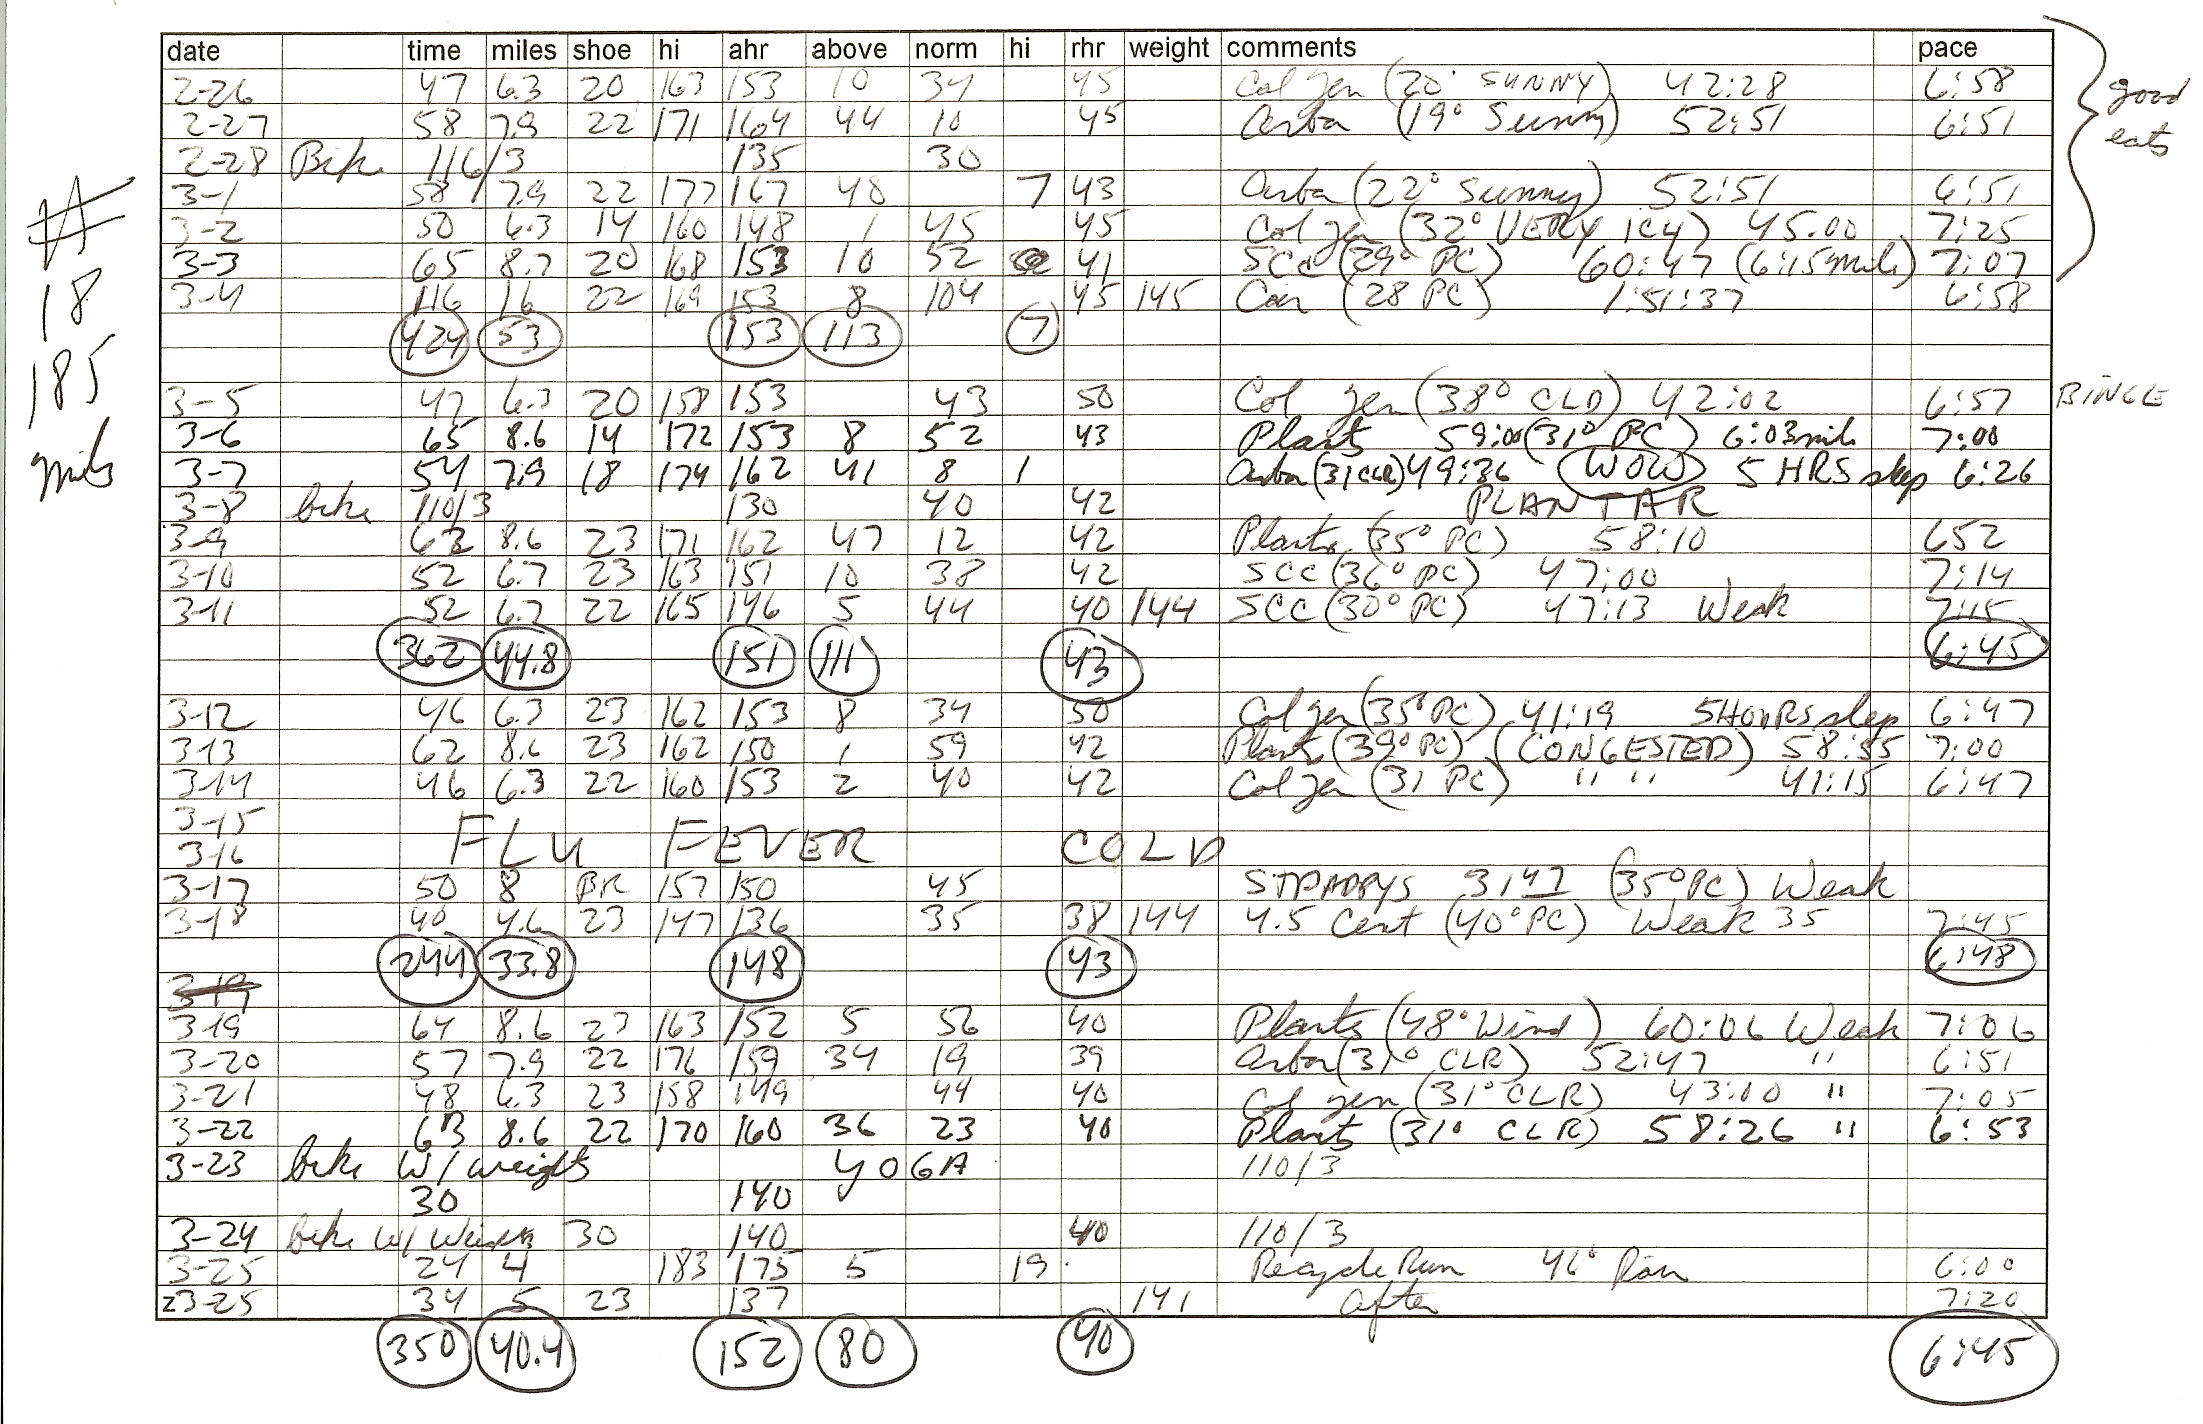 date time miles shoe hi ahr above norm hi rhr weight comments pace
2-26 47 6.3 20 163 153 10 34 45 Col Gen (20° SUNNY) 42:28 6:58
2-27 58 7.9 22 171 164 44 10 45 Arba (19° Sunny) 52:51 6:51
good eats
2-28 Bike 116/3 135 30
3-1 58 7.9 22 177 167 48 7 43 Arba (22° Sunny) 52:51 6:51
3-2 50 6.3 14 160 148 1 45 45 Col gen (32° VERY ICY) 45.00 7:25
3-3 65 8.7 20 168 153 10 52 41 SCC (29° PC) 60:47 (6:15 mile) 7:07
3-4 116 16 22 169 153 8 104 45 145 (28 PC) 1:51:37 6:58
424 53 153 113 7
# 18 185 miles
3-5 47 6.3 20 158 153 43 50 Col gen (38° CLD) 42:02 6:57 BINGE
3-6 65 8.6 14 172 153 8 52 43 Plants 59:00 (31° PC) 6:03 mile 7:00
3-7 54 7.9 18 174 162 41 8 1 Arba (31 CLR) 49:36 WOW 5 HRS sleep 6:26
3-8 bike 110/3 130 40 42 PLANTAR
3-9 62 8.6 23 171 162 47 12 42 Plants (35° PC) 58:10 652
3-10 52 6.7 23 163 151 10 38 42 SCC (36° PC) 47:00 7:14
3-11 52 6.7 22 165 146 5 44 40 144 SCC (30° PC) 47:13 Weak 7:15
362 44.8 151 111 43 6:45
3-12 46 6.3 23 162 153 8 34 50 Col gen (35° PC) 41:19 5 HOURS sleep 6:47
3-13 62 8.6 23 162 150 1 59 42 Plants (39° PC) (CONGESTED) 58:55 7:00
3-14 46 6.3 22 160 153 2 40 42 Col gen (31 PC) " " 41:15 6:47
3-15
FLU FEVER COLD
3-16
3-17 50 8 BR 157 150 45 3147 (35° PC) Weak
3-18 40 4.6 23 147 136 35 38 144 4.5 Cent (40° PC) Weak 35 7:45
244 33.8 148 43 6:48
3-19
3-19 64 8.6 23 163 152 5 56 40 Plants (48° Wind) 60:06 Weak 7:06
3-20 57 7.9 22 176 159 34 19 39 Arba (31° CLR) 52:47 " 6:51
3-21 48 6.3 23 158 149 44 40 Col gen (31° CLR) 43:00 " 7:05
3-22 63 8.6 22 170 160 36 23 40 Plants (31° CLR) 58:26 " 6:53
3-23 bike W/ weights YOGA 110/3
30 140
3-24 bike W/ Weights 30 140 40 110/3
3-25 24 4 183 175 5 19 Recycle Run 46° Rain 6:00
3-25 34 5 23 137 141 after 7:20
350 40.4 152 80 40 6:45